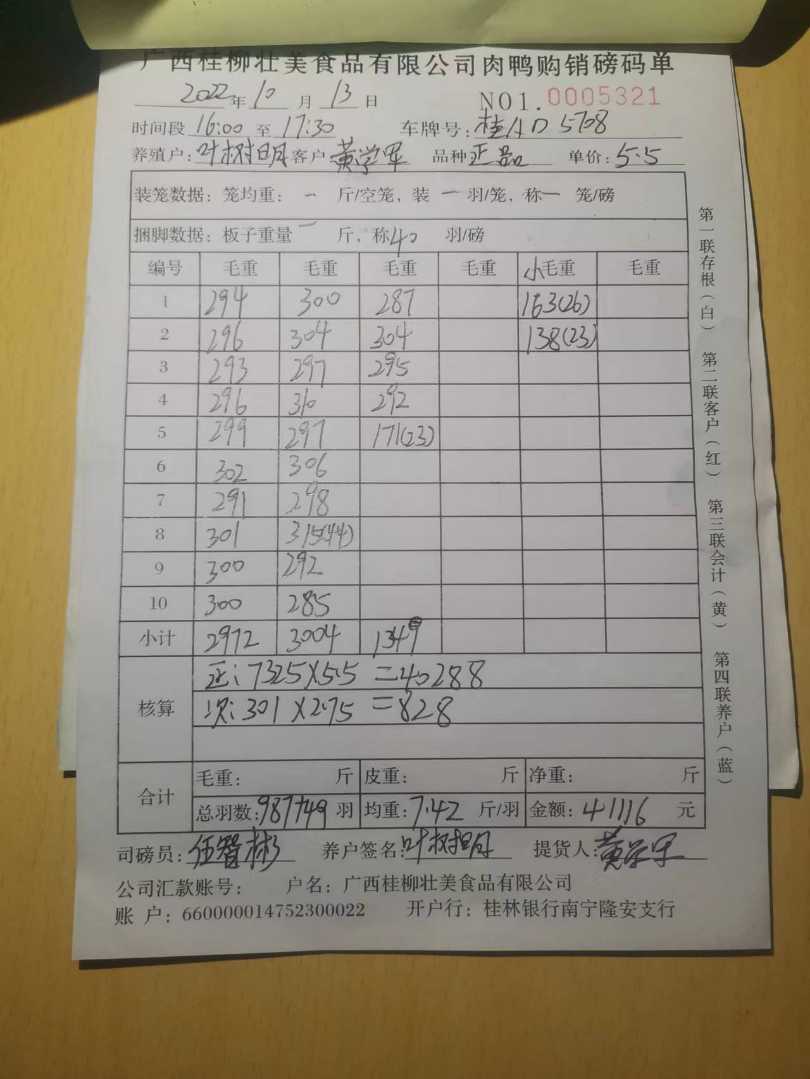 广西桂柳壮美食品有限公司肉鸭购销磅码单
2022年10月13日 NO1.0005321
时间段 16:00 至 17:30 车牌号: 桂AD5708
养殖户: 叶树明 客户 黄学军 品种 正品 单价: 5.5
装笼数据: 笼均重: 一 斤/空笼, 装 一 羽/笼, 称 一 笼/磅
捆脚数据: 板子重量 一 斤, 称40 羽/磅
编号 毛重 毛重 毛重 毛重 小毛重 毛重
1 294 300 287 163(26)
2 296 304 304 138(23)
3 293 297 295
4 296 310 292
5 299 297 171(23)
6 302 306
7 291 298
8 301 315(44)
9 300 292
10 300 285
小计 2972 3004 1349
核算 正: 7325×5.5=40288
次: 301×2.75=828
合计 毛重: 斤 皮重: 斤 净重: 斤
总羽数: 987+49 羽 均重: 7.42 斤/羽 金额: 41116 元
司磅员: 伍智彬 养户签名: 叶树明 提货人: 黄学军
公司汇款账号: 户名: 广西桂柳壮美食品有限公司
账 户: 660000014752300022 开户行: 桂林银行南宁隆安支行
第一联存根(白) 第二联客户(红) 第三联会计(黄) 第四联养户(蓝)